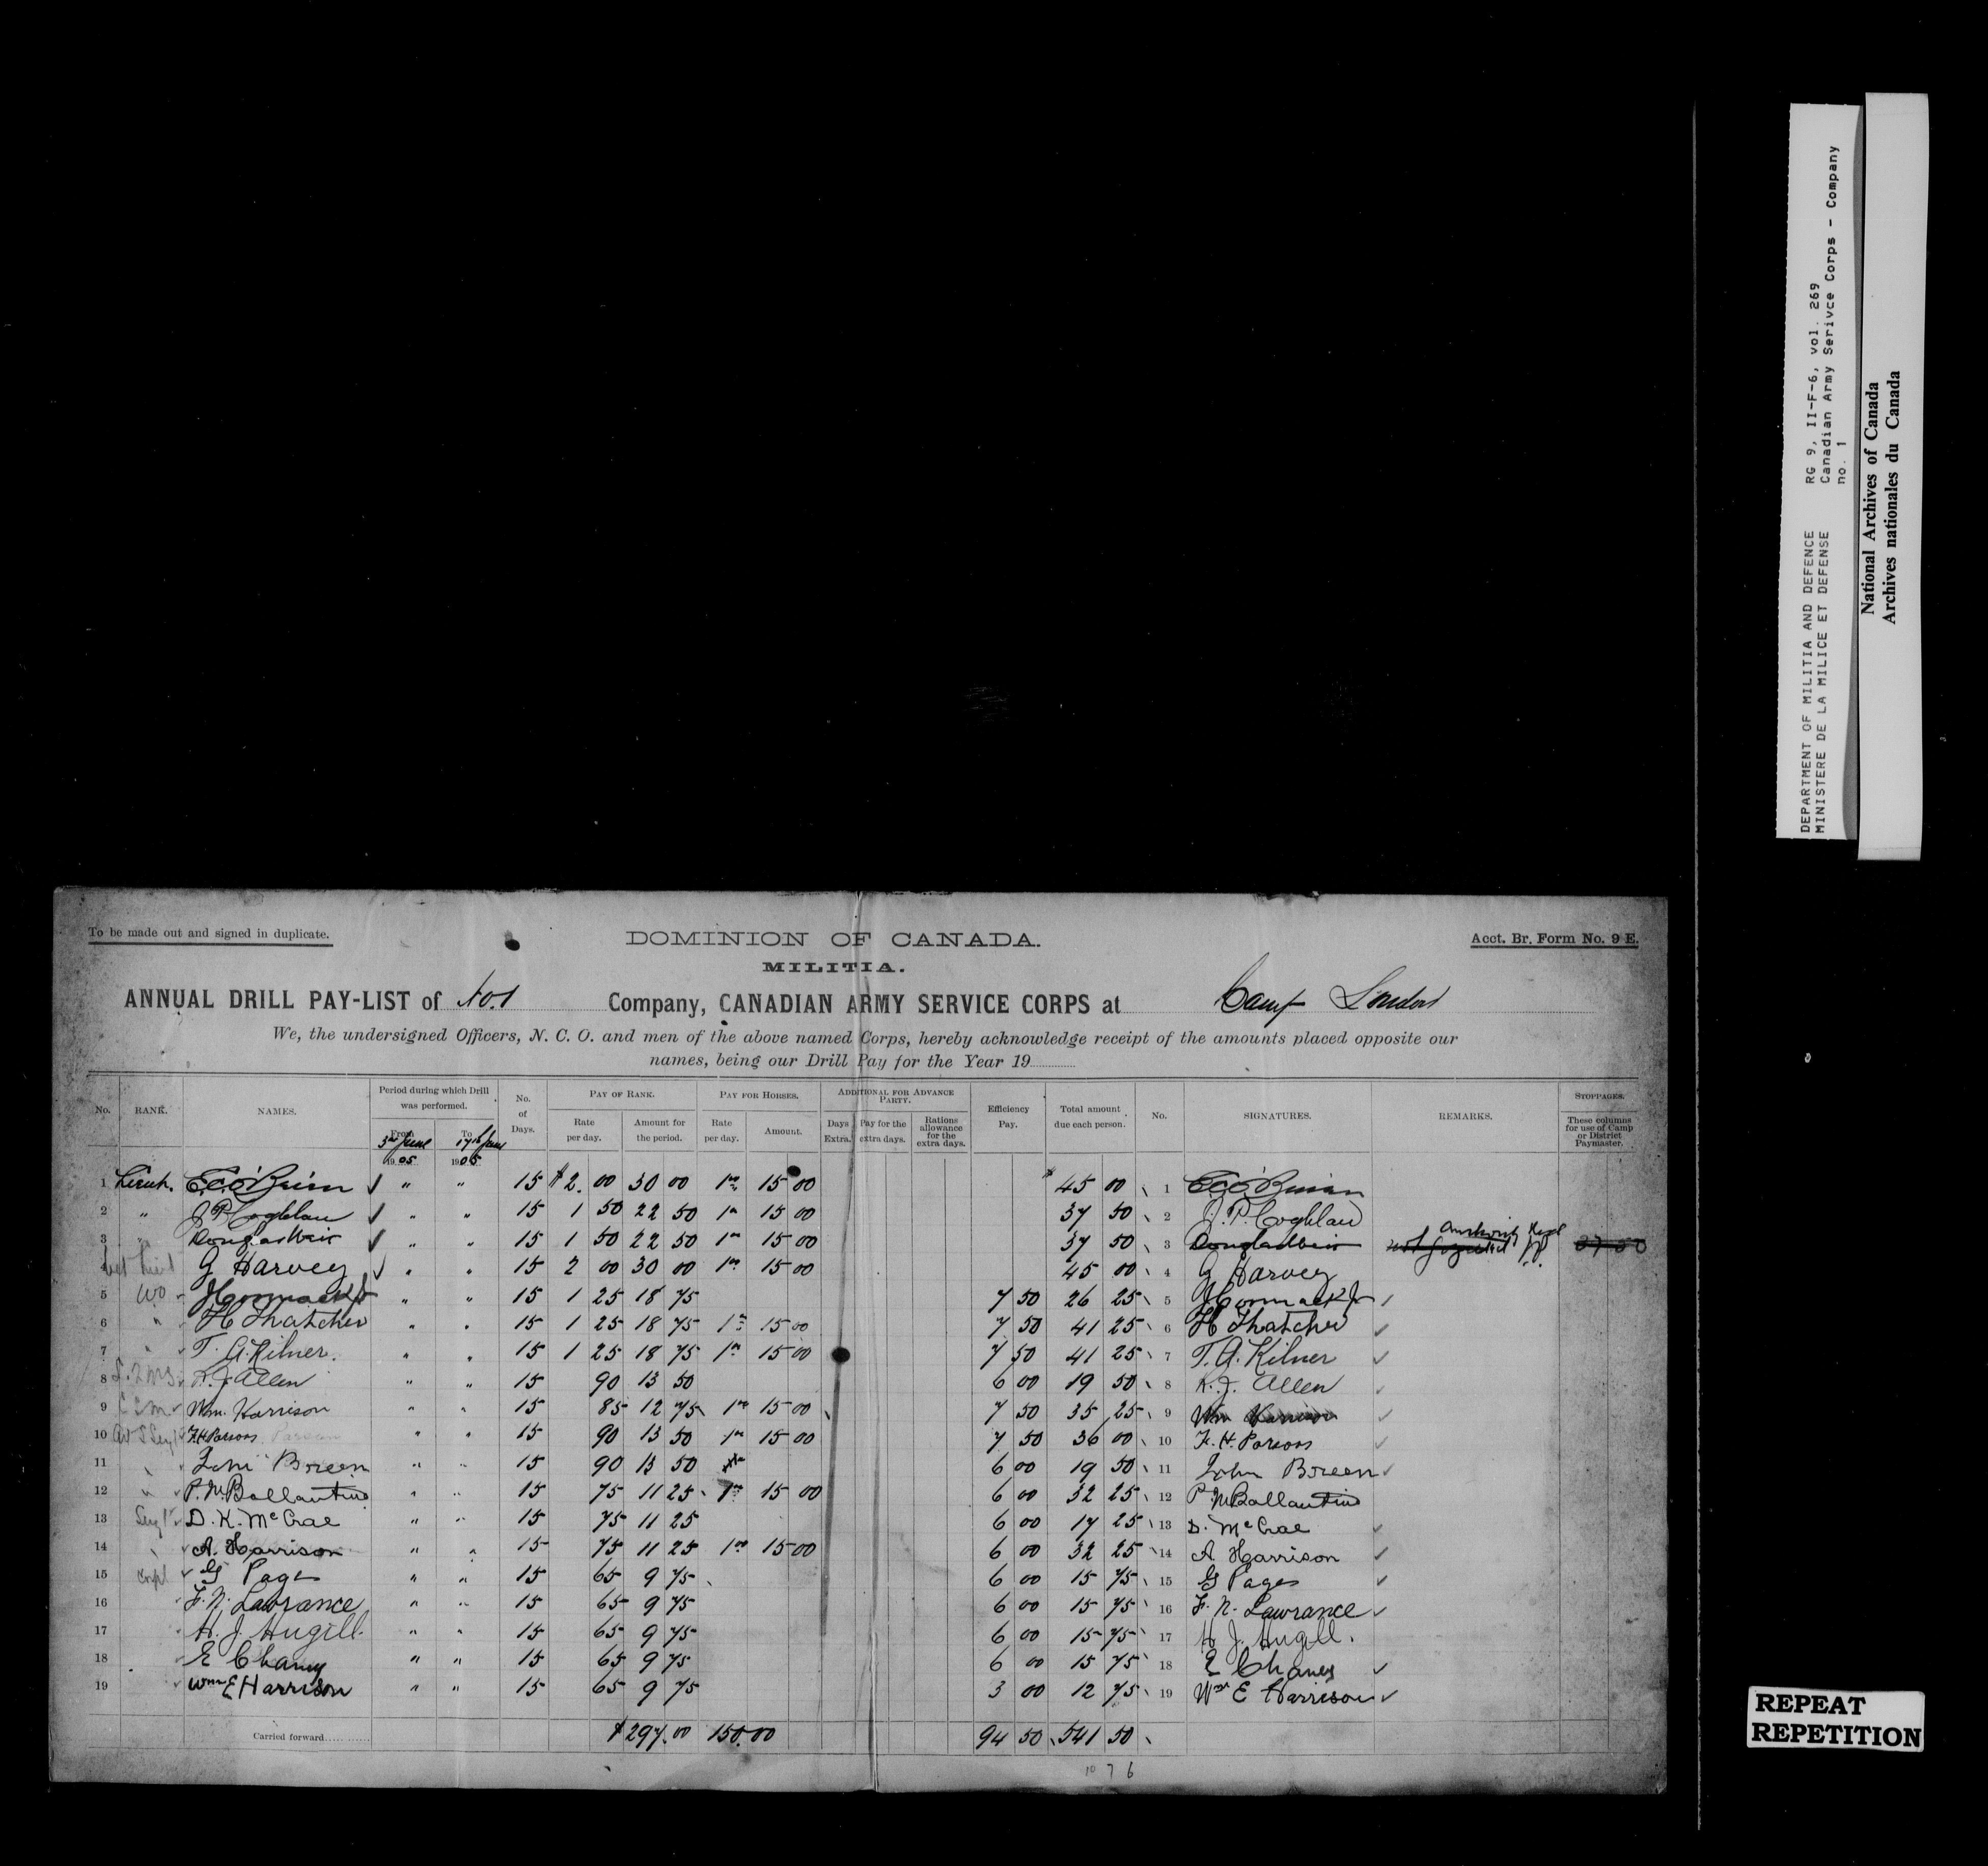 DEPARTMENT OF MILITIA AND DEFENCE RG 9, II-F-6, vol. 269
MINISTERE DE LA MILICE ET DEFENSE Canadian Army Serivce Corps - Company
no. 1
National Archives of Canada
Archives nationales du Canada
To be made out and signed in duplicate.
DOMINION OF CANADA.
Acct. Br. Form No. 9 E.
MILITIA.
ANNUAL DRILL PAY-LIST of No. 1 Company, CANADIAN ARMY SERVICE CORPS at Camp London
We, the undersigned Officers, N. C. O. and men of the above named Corps, hereby acknowledge receipt of the amounts placed opposite our
names, being our Drill Pay for the Year 19
No. RANK. NAMES. Period during which Drill was performed. No. of Days. PAY OF RANK. PAY FOR HORSES. ADDITIONAL FOR ADVANCE PARTY. Efficiency Pay. Total amount due each person. No. SIGNATURES. REMARKS. STOPPAGES.
From To Rate per day. Amount for the period. Rate per day. Amount. Days Extra. Pay for the extra days. Rations allowance for the extra days. These columns for use of Camp or District Paymaster.
3rd June 1905 17th June 1905
1 Lieut. E.C. O'Brien " " 15 $2.00 30 00 1 00 15 00 $45 00 1
2 " J P Coghlan " " 15 1 50 22 50 1 00 15 00 37 50 2 J. P. Coghlan
3 " Douglas Weir " " 15 1 50 22 50 1 00 15 00 37 50 3 Douglas Weir not gazetted Authority 37 50
4 G Harvey " " 15 2 00 30 00 1 00 15 00 45 00 4 G Harvey
5 WO " " 15 1 25 18 75 7 50 26 25 5
6 " H Thatcher " " 15 1 25 18 75 1 00 15 00 7 50 41 25 6 H Thatcher
7 " T. A. Kilner. " " 15 1 25 18 75 1 00 15 00 7 50 41 25 7 T. A. Kilner
8 J. Allen " " 15 90 13 50 6 00 19 50 8 J. Allen
9 Wm. Harrison " " 15 85 12 75 1 00 15 00 7 50 35 25 9 Wm Harrison
10 F. H Parsons " " 15 90 13 50 1 00 15 00 7 50 36 00 10 F. H. Parsons
11 " John Breen " " 15 90 13 50 6 00 19 50 11 John Breen
12 " P. M Ballantine " " 15 75 11 25 1 00 15 00 6 00 32 25 12 P M Ballantine
13 Sergt D. K. McCrae " " 15 75 11 25 6 00 17 25 13 D. McCrae
14 " A. Harrison " " 15 75 11 25 1 00 15 00 6 00 32 25 14 A Harrison
15 Corpl G Page " " 15 65 9 75 6 00 15 75 15 G Page
16 F. N. Lawrance " " 15 65 9 75 6 00 15 75 16 F. N. Lawrance
17 H. J. Hugill. " " 15 65 9 75 6 00 15 75 17 H J. Hugill.
18 E Chaney " " 15 65 9 75 6 00 15 75 18 E Chaney
19 Wm E Harrison " " 15 65 9 75 3 00 12 75 19 Wm E Harrison
Carried forward $297.00 150.00 94 50 541 50
10 7 6
REPEAT
REPETITION